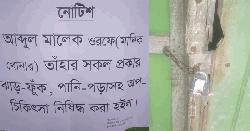 নোটিশ
আব্দুল মালেক ওরফে (মানিক
খোনার) তাঁহার সকল প্রকার
ঝাড়-ফুঁক, পানি-পড়াসহ অপ-
চিকিৎসা নিষিদ্ধ করা হইল।